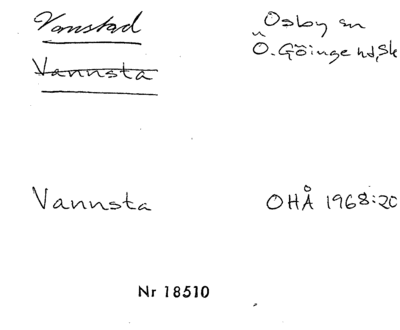 Vanstad
Osby sn
Ö. Göinge hd, Sk
Vannsta
Vannsta
OHÅ 1968:20
Nr 18510